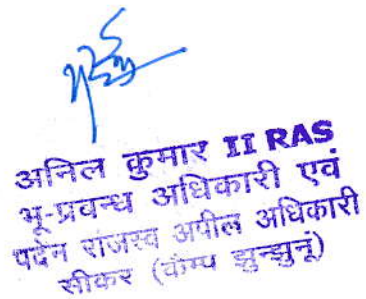 अनिल कुमार II RAS
भू-प्रवन्ध अधिकारी एवं
पदेन राजस्व अपील अधिकारी
सीकर (कैम्प झुन्झुनू)